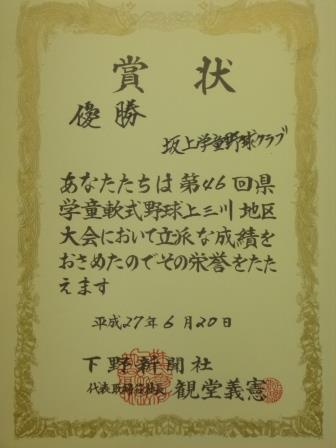 賞状
優勝
坂上学童野球クラブ
あなたたちは第46回県
学童軟式野球上三川地区
大会において立派な成績を
おさめたのでその栄誉をたた
えます
平成27年6月20日
下野新聞社
代表取締役社長 観堂義憲